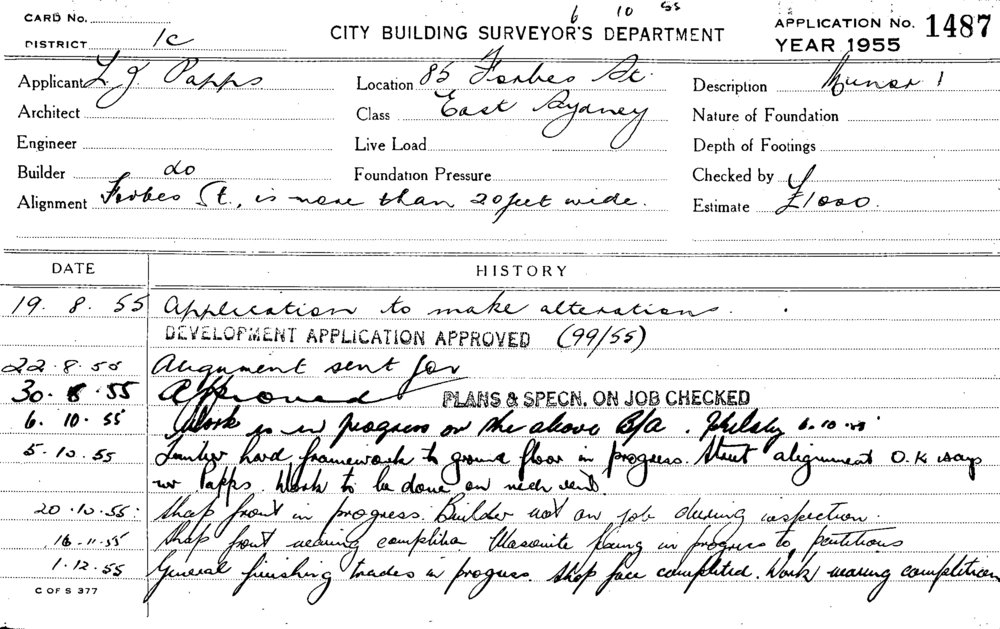 6 10 55
CARD No.
DISTRICT 1c
CITY BUILDING SURVEYOR'S DEPARTMENT
APPLICATION No. 1487
YEAR 1955
Applicant L J Papps
Location 85 Forbes St.
Description Minor 1
Architect
Class East Sydney
Nature of Foundation
Engineer
Live Load
Depth of Footings
Builder do
Foundation Pressure
Checked by
Alignment Forbes St., is more than 20 feet wide.
Estimate £1000.
DATE
HISTORY
19. 8. 55 Application to make alterations.
DEVELOPMENT APPLICATION APPROVED (99/55)
22.8.55 Alignment sent for
30.8.55 Approved PLANS & SPECN. ON JOB CHECKED
6. 10. 55 Work is in progress on the above B/A. 6.10.55
5.10.55 Timber framework to ground floor in progress. Street alignment O.K. says
mr Papps. Work to be done on
20.10.55. Shop front in progress. Builder not on job during inspection.
16.11.55 Shop front nearing completion. Masonite fixing in progress to partitions
1.12.55 General finishing trades in progress. Shop face completed. Work nearing completion
C OF S 377